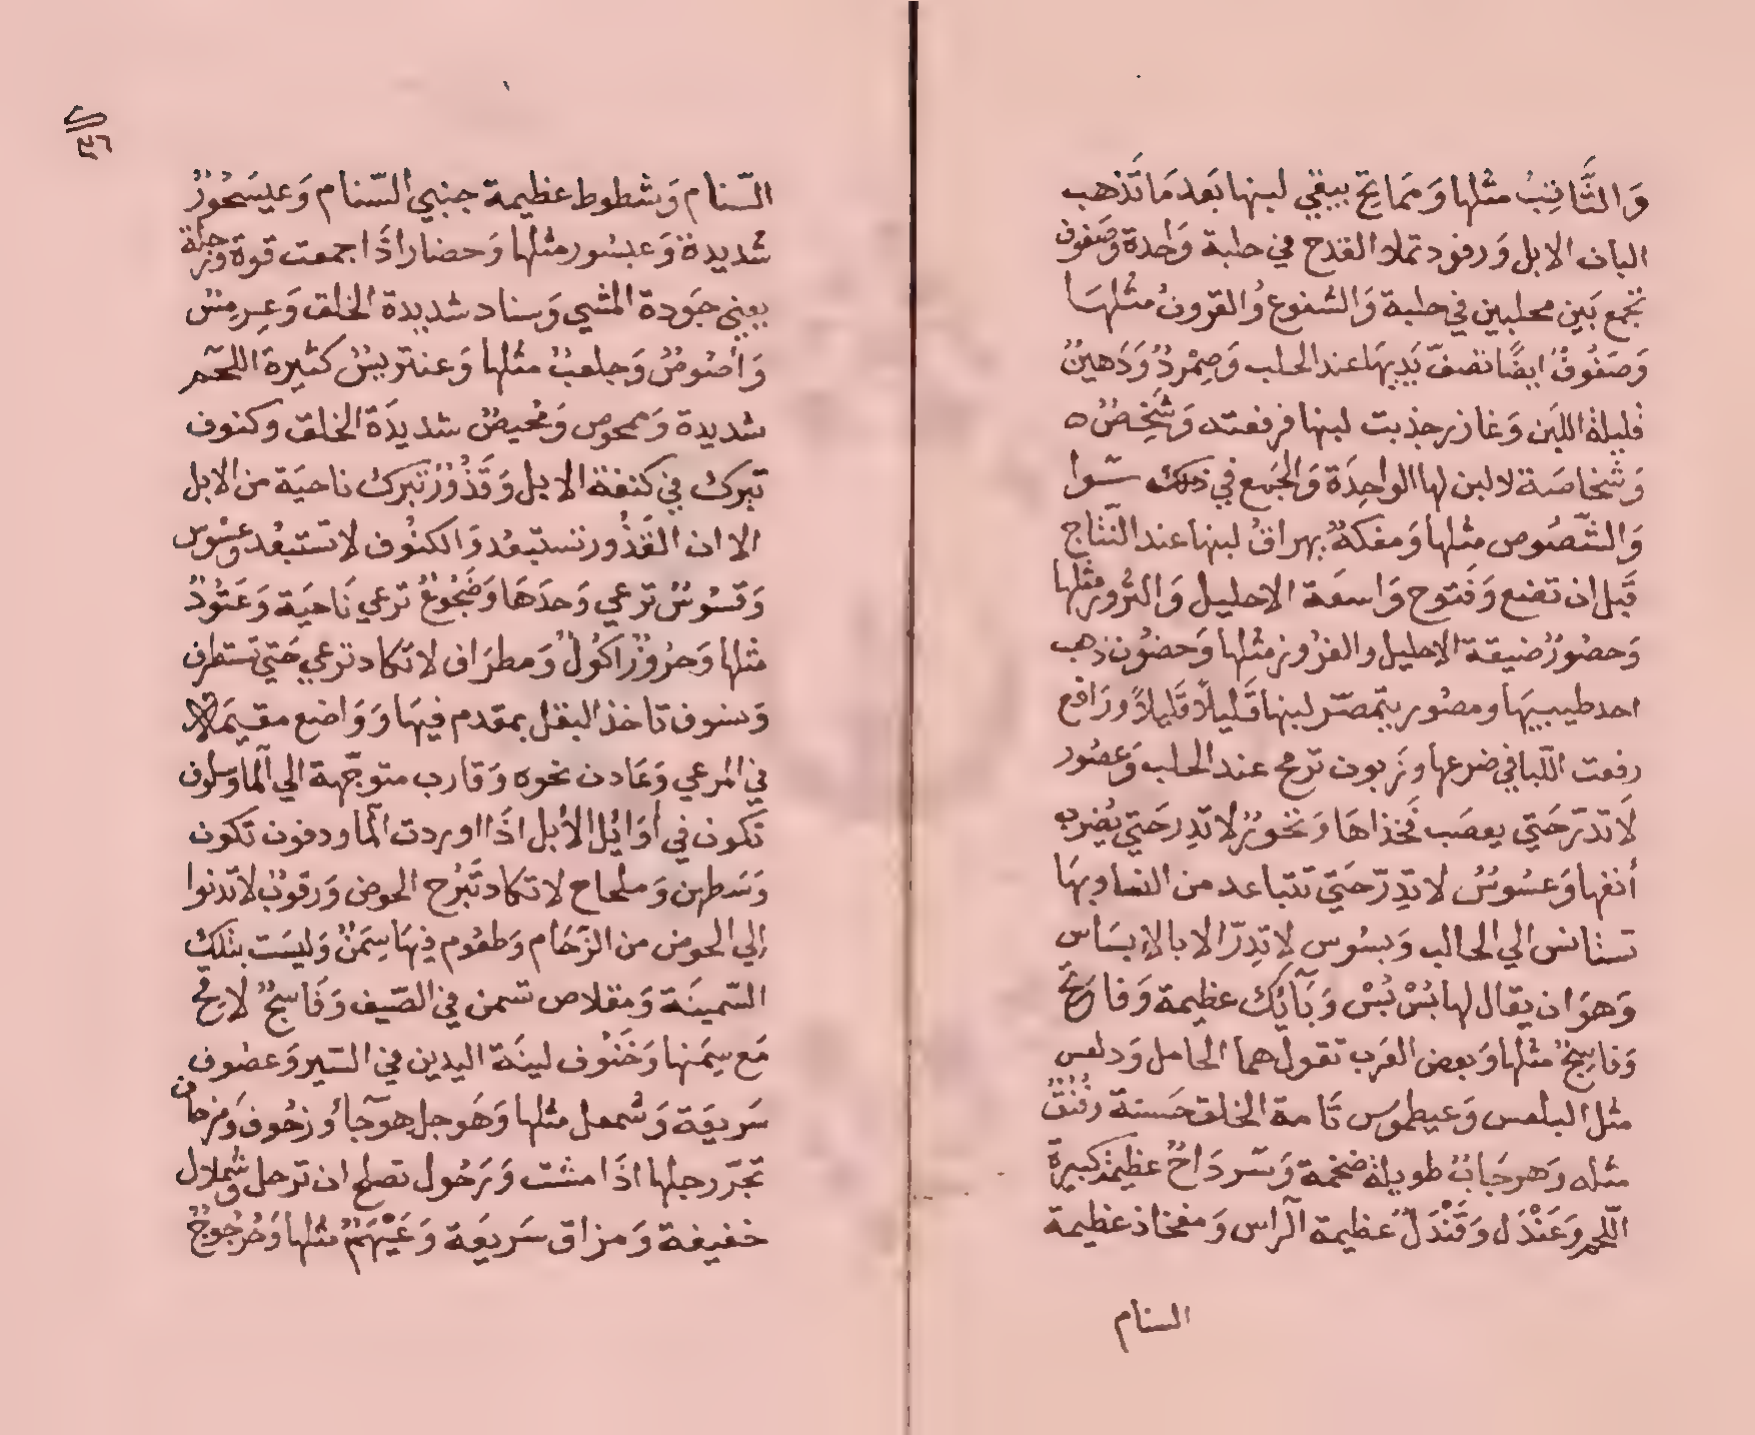 وَالثَّاقِبُ مثلها وَمَمَانِحُ يبقي لبنها بَعد مَا تَذهب
البان الابل وَرفود تملا القدح في حلبة وَاحدة وَصَفوف
تجمع بَين محلبين في حلبة وَالشفوع وُالقرونُ مثلهَا
وَصَفُوفُ ايضًا تصفّ يَديهَا عند الحلب وَصِمْردُ وَدَهينُ
قليلة اللبَن وَغارز جذبت لبنها فرفعته وَشَخِصُ ه
وَشخاصَة لا لبن لها الواحِدَة وَالجَمع في ذلك سَوا
وَالشّصُوص مثلها وَمفكهُ يهراقُ لبنها عند النّتاج
قَبل ان تضع وَفَتوح وَاسعَة الاحليل وَالثرُور مثلها
وَحصُورُ ضيقة الاحليل والعزُوز مثلها وَحضُون ذهب
احد طبييهَا ومصُور يتمصّر لبنها قَليلاً قَليلاً ورَافع
رفعت اللّبا في ضرعها وزَبون ترمح عند الحلب وَعصُور
لَا تدرّ حَتي يعصَب فَخذاهَا وَنخورُ لا تدِر حَتي يُضرب
أنفها وَعسُوسُ لا تدِرّ حَتي تتباعد من النسا وبهَا
تستانس الي الحالب وَبسُوس لا تِدِرّ الا بالإبسَاس
وَهوَ ان يقال لها بُسْ بُسْ وَبَآئِكُ عظيمة وَفاثجُ
وَفاسِجُ مثلها وَبعض العَرب تقول هما الحامل وَدلعس
مثل البلعس وَعيطموس تَامة الخلق حَسنة رنُفُقُ
مثله وَهرجَابُ طويلة ضخمة وَسَرداحُ عظيمة كبيرة
اللّحم وَعَنْدَل وَقَنْدَلُ عظيمة الرّاس وَمفخاذ عظيمة
السنام
٣٦
السّنام وَشطوط عظيمة جنبي السّنام وَعيسَجُورُ
شديدة وَعبسُور مثلها وَحضار اذَا اجمعت قوة وَجرة
يعني جَودة المشي وَسناد شديدة الخلق وَعِرمِسُ
وَأصُوصُ وَجلعبُ مثلها وَعنتريسُ كثيرة اللّحم
شديدة وَممحوص وَمحيصُ شديدَة الخلق وكنوف
تبرك في كنفة الابل وَقَذُورُ تبرك ناحيَة من الابل
الا ان القَذُور تستبعد وَالكنُوف لا تستبعُد وعسُوس
وَقسُوسُ ترعي وَحدَهَا وَضَجُوعُ ترعي نَاحيَة وَعَنُودُ
مثلها وَجرُوزُ اكُولُ وَمطرَاف لا تكاد ترعي حَتي تستطرف
وَسوف تاخذ البقل بمقدم فيهَا وَوَاضع مقيمَة
في المرعي وَعَادن نحوه وَقارب متوجّهة الي المآ وَسلوف
تكون في أوَائِل الأبل اذَا اوردت المآ ودفون تكون
وَسَطهن وَملحاح لا تكاد تَبرُح الحوض وَرقوبُ لا تدنوا
الي الحوض من الزّحَام وَطعُوم فِيهَا سِمَنُ وَليسَت بتلك
السّمينَة وَمقلاص تسمن في الصّيف وَفَاسجُ لاقحُ
مَع سِمَنها وَخَنُوف لينَة اليدين في السّير وَعصُوف
سَريعَة وَشمعل مثلها وَهَوجل هوجَآ وَزحُوف وَمزحاف
تجَرّ رجلها اذَا مشت وَرَحُول تصلح ان ترحل وَشملال
خفيفة وَمزاق سَريعَة وَعَيْهَمُ مثلها وَحُرجُوجُ